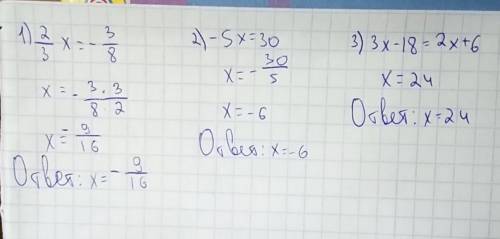 1) 2/3 x = - 3/8
x = - 3·3/8 2
x = - 9/16
Ответ: x = - 9/16
2) -5x = 30
x = - 30/5
x = -6
Ответ: x = -6
3) 3x - 18 = 2x + 6
x = 24
Ответ: x = 24